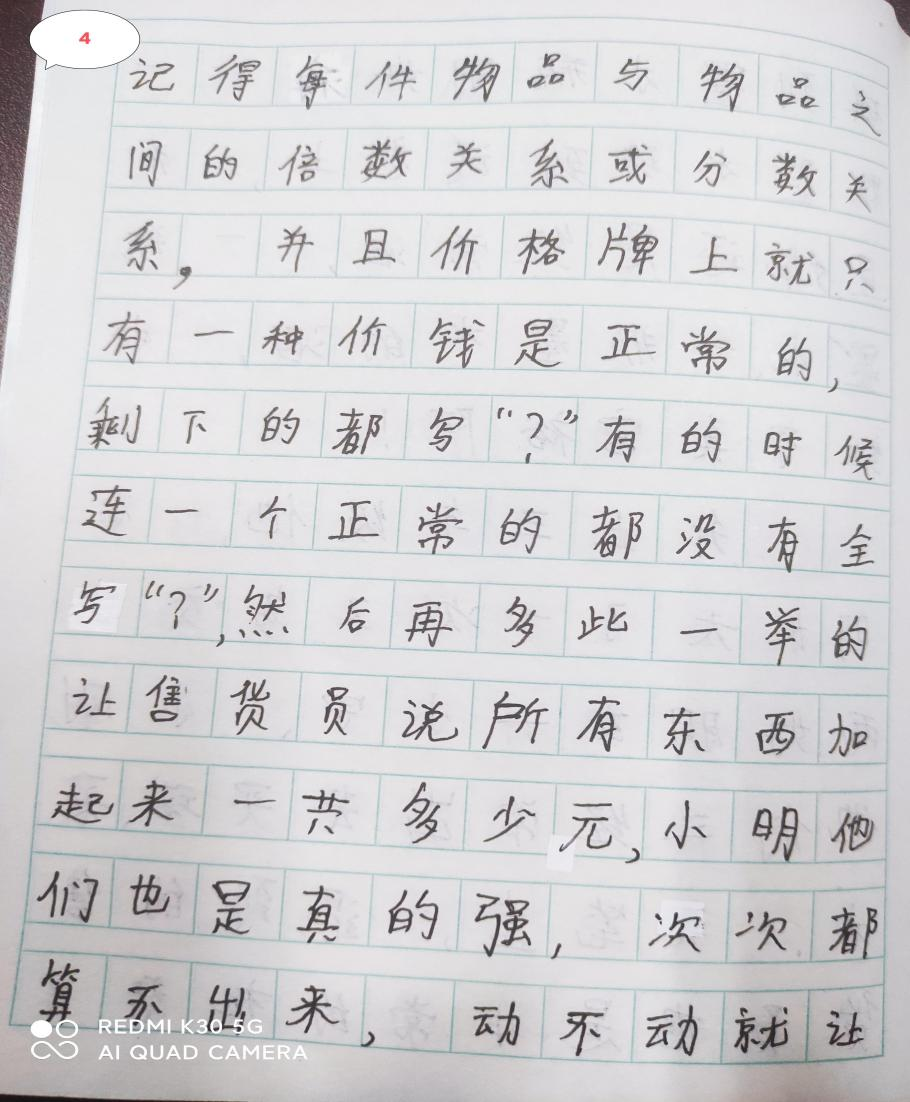 4
记得每件物品与物品之
间的倍数关系或分数关
系，并且价格牌上就只
有一种价钱是正常的，
剩下的都写“？”有的时候
连一个正常的都没有全
写“？”，然后再多此一举的
让售货员说所有东西加
起来一共多少元，小明他
们也是真的强，次次都
算不出来，动不动就让
REDMI K30 5G
AI QUAD CAMERA